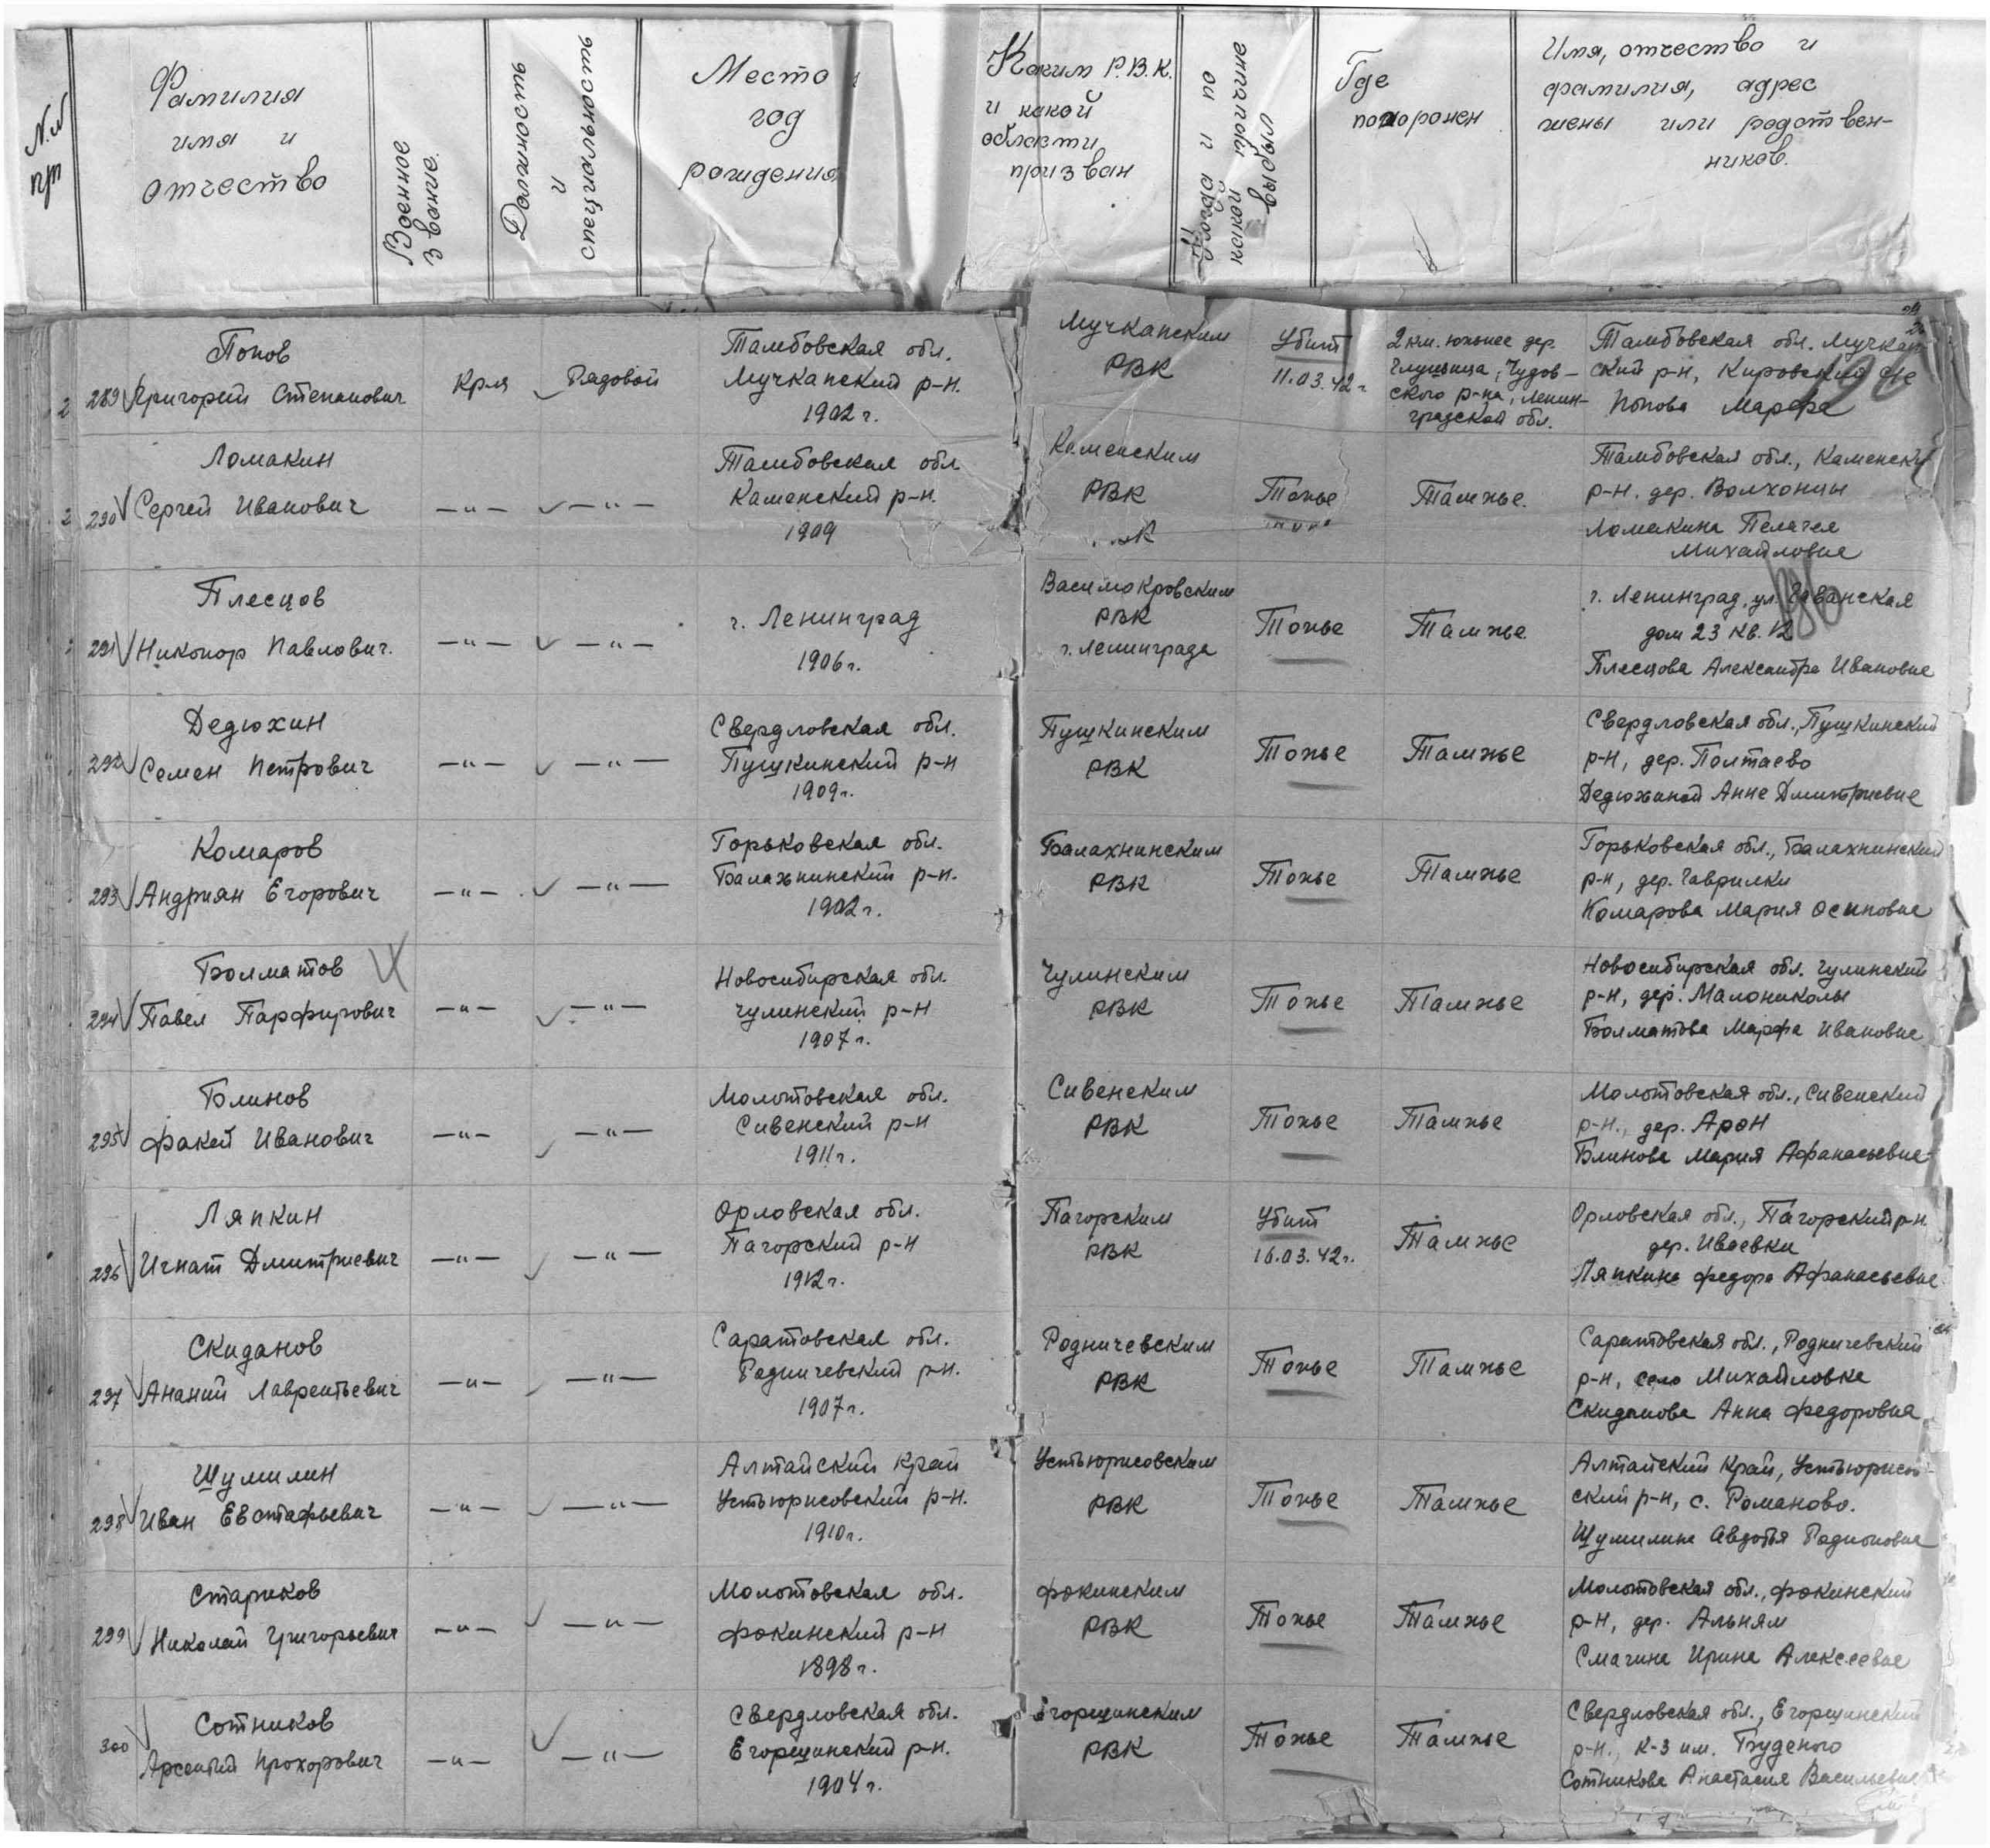 N.N пп
Фамилия имя и отчество
Военное звание.
Должность и специальность
Место год рождения
Каким Р.В.К. и какой области призван
Когда и по какой причине выбыл
Где похоронен
Имя, отчество и фамилия, адрес жены или родственников.
Попов
289 Григорий Степанович
Кр-я
Рядовой
Тамбовская обл.
Мучкапский р-н.
1902 г.
Мучкапским
РВК
Убит
11.03.42 г
2 км. южнее дер.
Глушица, Чудов-
ского р-на, Ленин-
градской обл.
Тамбовская обл. Мучкап
ский р-н, Кировский
Попова Марфа
Ломакин
290 Сергей Иванович
—"—
—"—
Тамбовская обл
Каменский р-н.
1909
Каменским
РВК
Тоже
Тамже.
Тамбовская обл., Каменски
р-н. дер. Волхонщы
Ломакина Пелагея
Михайловне
Плесцов
291 Никонор Павлович.
—"—
—"—
г. Ленинград
1906 г.
РВК
г. Ленинграда
Тоже
Тамже.
г. Ленинград, ул. Гаванская
дом 23 кв. 12
Плесцова Александра Ивановне
Дедюхин
292 Семен Петрович
—"—
—"—
Свердловская обл.
Пушкинский р-н
1909 г.
Пушкинским
РВК
Тоже
Тамже
Свердловская обл., Пушкинский
р-н, дер. Полтаево
Дедюхиной Анне Дмитриевне
Комаров
293 Андриян Егорович
—"—
—"—
Горьковская обл.
Балахнинский р-н.
1902 г.
Балахнинским
РВК
Тоже
Тамже
Горьковская обл., Балахнинский
р-н, дер. Гаврилки
Комарова Мария Осиповне
Болматов
294 Павел Парфирович
—"—
—"—
Новосибирская обл.
Чулинский р-н
1907 г.
Чулинским
РВК
Тоже
Тамже
Новосибирская обл. Чулинский
р-н, дер. Малониколы
Болматова Марфа Ивановне
Блинов
295 Факей Иванович
—"—
—"—
Молотовская обл.
Сивенский р-н
1911 г.
Сивенским
РВК
Тоже
Тамже
Молотовская обл., Сивенский
р-н., дер. Арон
Блинова Мария Афанасьевне
Ляпкин
296 Игнат Дмитриевич
—"—
—"—
Орловская обл.
Пагорский р-н
1912 г.
Пагорским
РВК
Убит
16.03.42 г.
Тамже
Орловская обл., Пагорский р-н.
дер. Иваевки
Ляпкина Федора Афанасьевне
Скиданов
297 Ананий Лаврентьевич
—"—
—"—
Саратовская обл.
Родничевский р-н.
1907 г.
Родничевским
РВК
Тоже
Тамже
Саратовская обл., Родничевский
р-н, село Михайловка
Скиданова Анна Федоровна
Шумилин
298 Иван Евстафьевич
—"—
—"—
Алтайский край
Устьюрисовский р-н.
1910 г.
Устьюрисовским
РВК
Тоже
Тамже
Алтайский край, Устьюрисов-
ский р-н, с. Романово.
Шумилина Авдотья Родионовне
Стариков
299 Николай Григорьевич
—"—
—"—
Молотовская обл.
Фокинский р-н
1898 г.
Фокинским
РВК
Тоже
Тамже
Молотовская обл., Фокинский
р-н, дер. Альням
Смагина Ирина Алексеевне
Сотников
300 Арсентий Прохорович
—"—
—"—
Свердловская обл.
Егоршинский р-н.
1904 г.
Егоршинским
РВК
Тоже
Тамже
Свердловская обл., Егоршинский
р-н., к-з им. Буденого
Сотникова Анастасия Васильевне